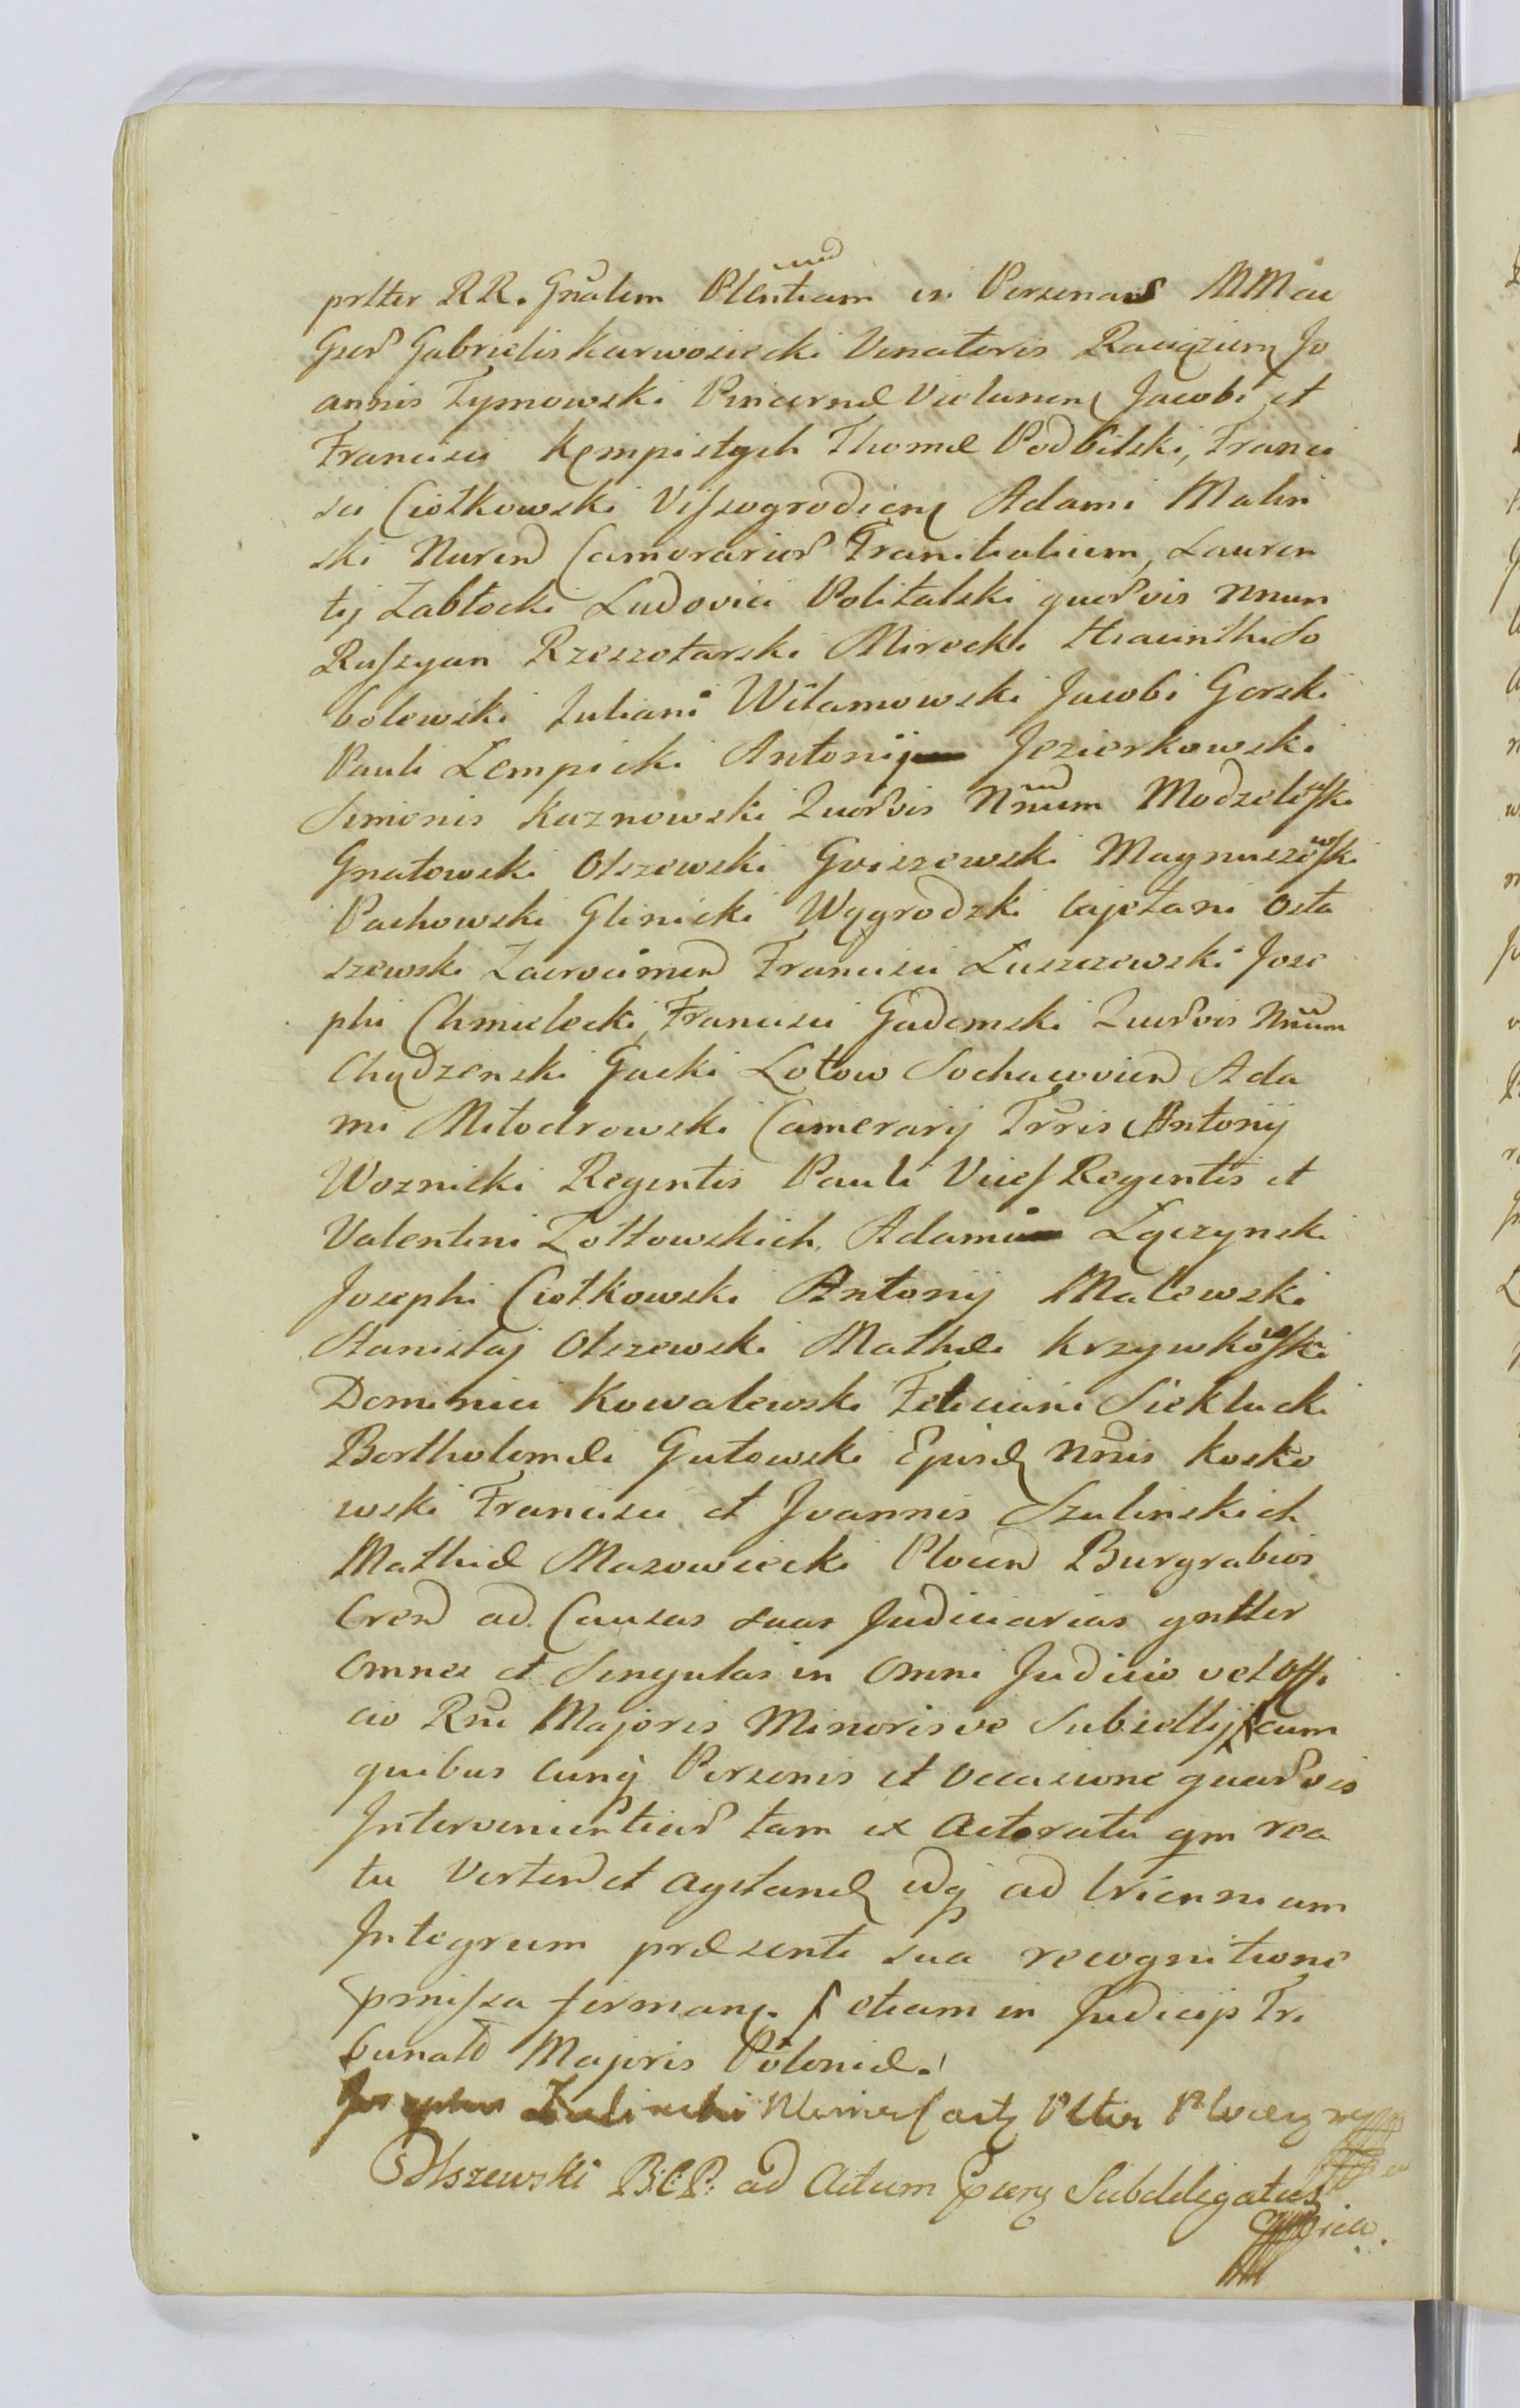 prltter RR. Gnalem Plentiam in Personas MM ac
Gsor Gabrielis Karwosiecki Venatoris Raciążien Jo
annis Tymowski Pincernæ Vielunen Jacobi et
Francisci Kempistych Thomæ Podbilski, Franci
sci Ciołkowski Vissogrodien Adami Malin
ski Nuren Camerarior Granitialium, Lauren
tij Zabłocki Ludovici Politalski quorvis Nnum
Russyan Rzeszotarski Mirocki Hiacinthi So
bolewski Juliani Wilamowski Jacobi Gorski
Pauli Lempicki Antonij Jezierkowski
Simonis Kaznowski Quorvis Nnum Modzelewski
Gnatowski Olszewski Goiszewski Magnuszewski
Pachowski Glinicki Wągrodzki Cajetani Osta
szewski Zacrocimen Francisci Luszczewski Jose
phi Chmielecki, Francisci Gadomski Quorvis Nnum
Chądzenski Gacki Lotow Sochaczovien Ada
mi Młodrowski Camerarij Trris Antonij
Woznicki Regentis Pauli Vices Regentis et
Valentini Zołtowskich, Adami Łączynski
Josephi Ciołkowski Antonij Malewski
Stanislaj Olszewski Mathæi Krzywkowski
Dominici Kowalewski Feliciani Sieklucki
Bartholomæi Gutowski Ejusd Nnis Kosko
wski Francisci et Joannis Szulinskich
Mathiæ Mazowiecki Plocen Burgrabior
Cren ad Causas suas Judiciarias gntter
omnes et Singulas in omni Judicio vel Offi
cio Rni Majoris Minorisve Subsellij cum
quibus cunq Personis et occasione quarvis
Intervenientiar tam ex Actoratu qm rea
tu Verten et agitand idq ad trienni um
Integrum præsenti sua recognitione
pmissa firman. etiam in Judicijs Tri
bunal Majoris Poloniæ.
Josephus Zulinski Plter
Olszewski B.C.P. ad Actum Subdelegatus